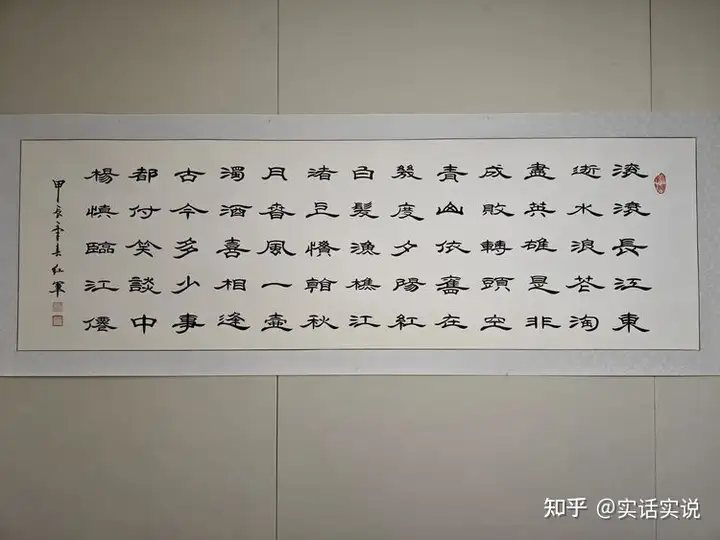 滚滚長江東
逝水浪花淘
盡英雄是非
成敗轉頭空
青山依舊在
幾度夕陽紅
白髮漁樵江
渚上慣看秋
月春風一壺
濁酒喜相逢
古今多少事
都付笑談中
楊慎臨江僊
甲辰 红軍
知乎 @实话实说